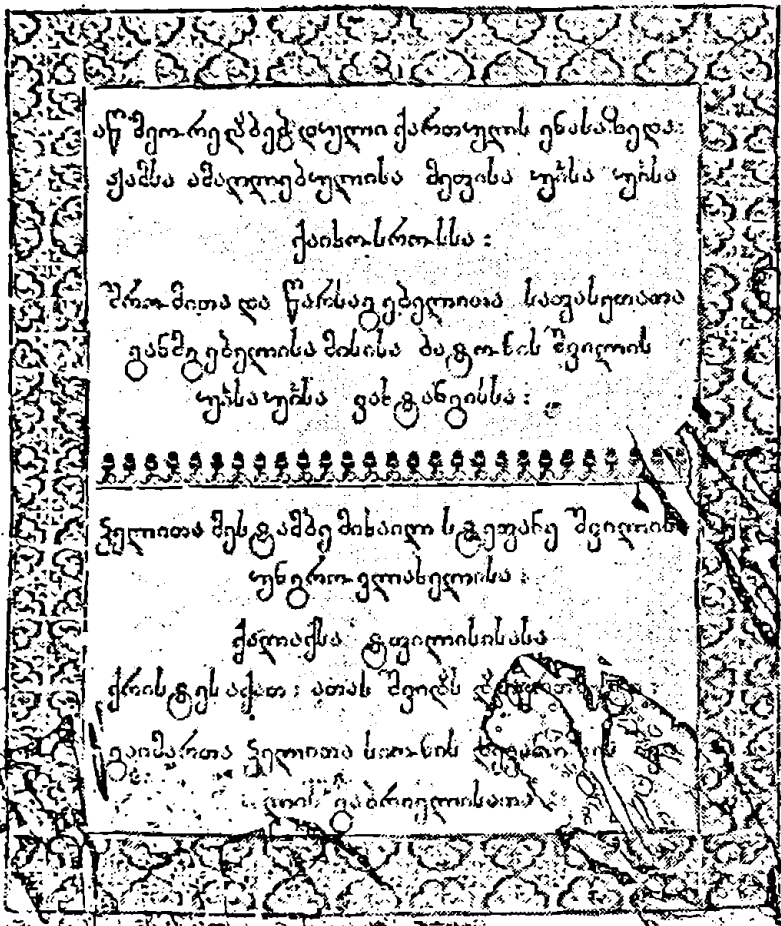 აწ მეორედ ბეჭდული ქართულის ენასა ზედა:
ჟამსა ამაღლებულისა მეფისა
ქაიხოსროსსა :
შრომითა და წარსაგებელითა საფასეთათა
განმგებელისა მისისა ბატონის შვილის
ვახტანგისსა :
ჴელითა მესტამბე მიხაილ სტეფანე შვილისა
უნგროვლახელისა :
ქალაქსა ტფილისისასა
ქრისტეს აქათ : ათას შვიდას
გაიმართა ჴელითა სიონის
გაბრიელისათა